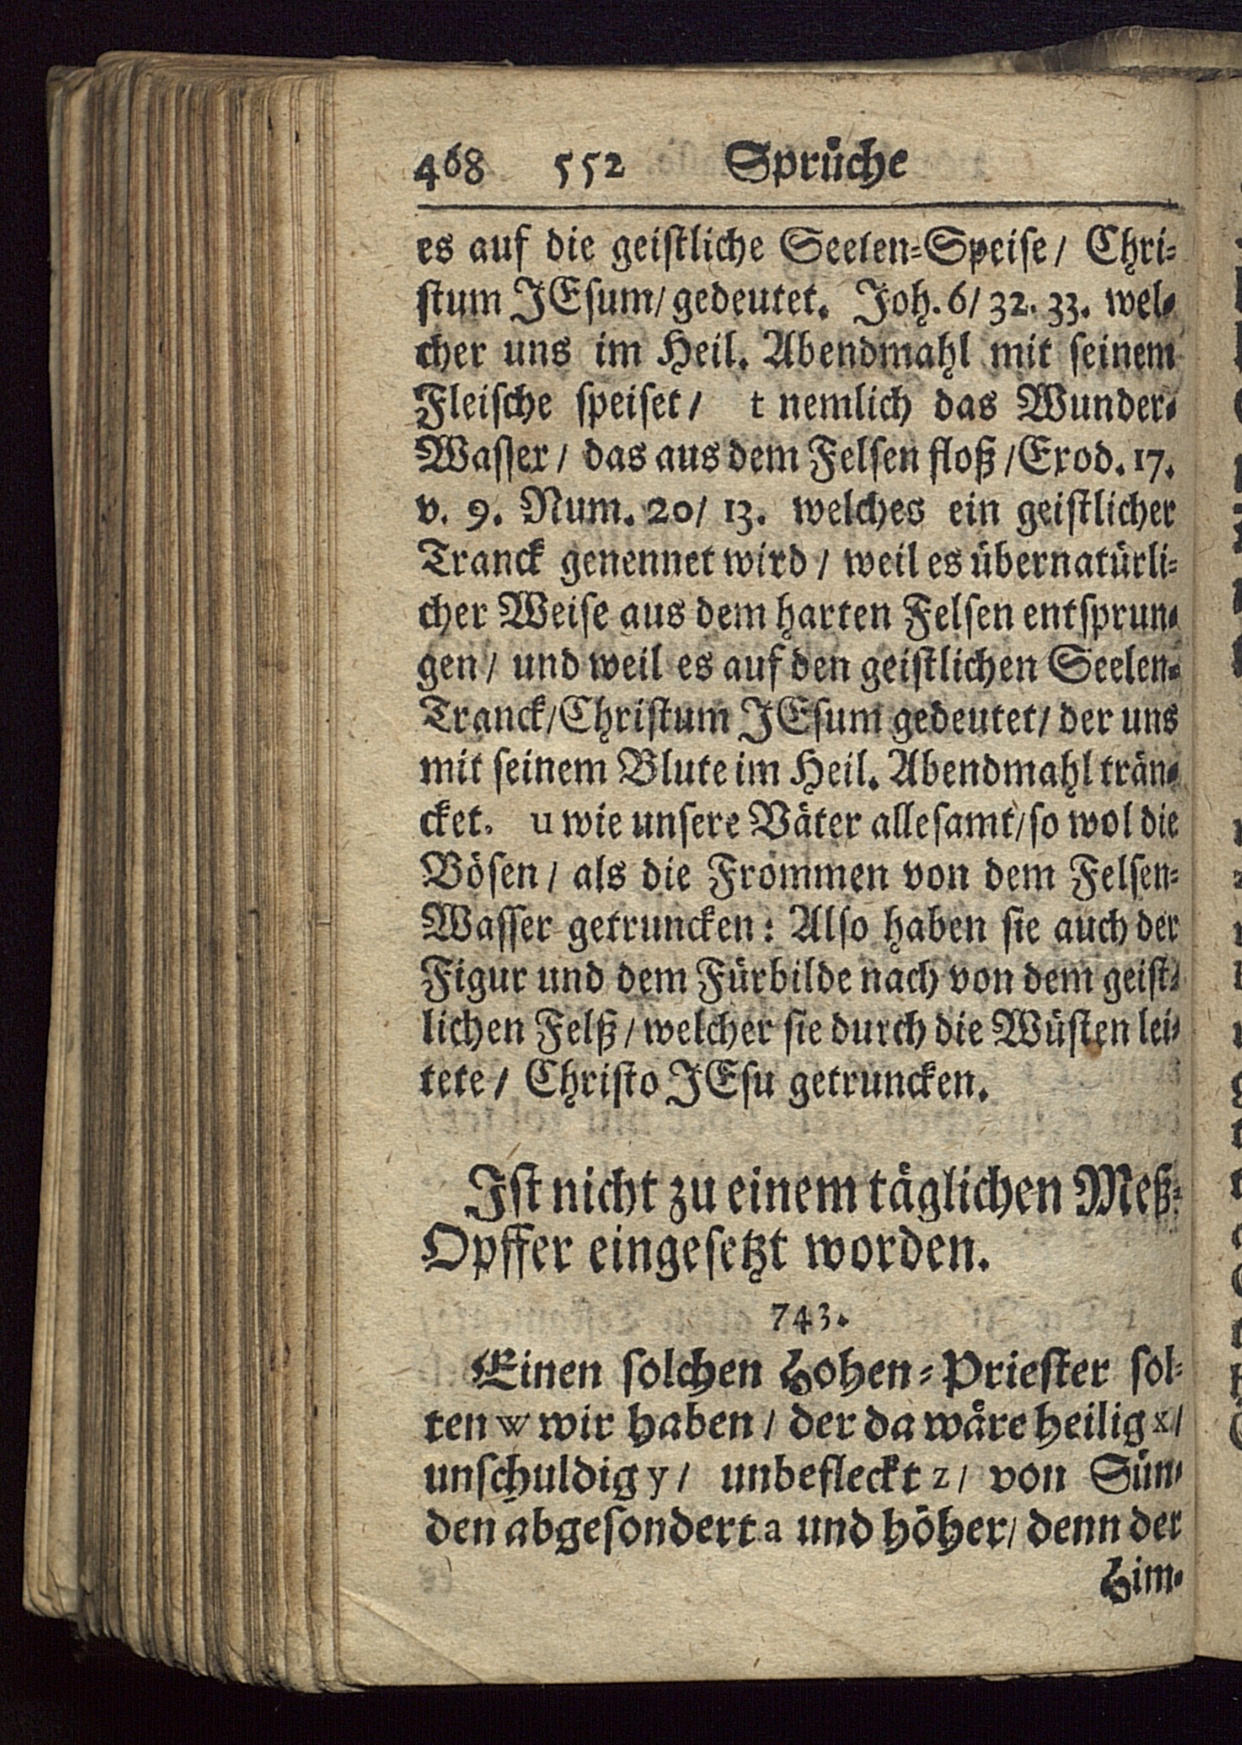 468 552 Sprüche
es auf die geistliche Seelen-Speise/ Chri-
stum JEsum/ gedeutet. Joh. 6/ 32. 33. wel-
cher uns im Heil. Abendmahl mit seinem
Fleische speiset/ t nemlich das Wunder-
Wasser/ das aus dem Felsen floß/ Exod. 17.
v. 9. Num. 20/ 13. welches ein geistlicher
Tranck genennet wird/ weil es übernatürli-
cher Weise aus dem harten Felsen entsprun-
gen/ und weil es auf den geistlichen Seelen-
Tranck/ Christum JEsum gedeutet/ der uns
mit seinem Blute im Heil. Abendmahl trän-
cket. u wie unsere Väter allesamt/ so wol die
Bösen/ als die Frommen von dem Felsen-
Wasser getruncken: Also haben sie auch der
Figur und dem Fürbilde nach von dem geist-
lichen Felß/ welcher sie durch die Wüsten lei-
tete/ Christo JEsu getruncken.
Ist nicht zu einem täglichen Meß-
Opffer eingesetzt worden.
743.
Einen solchen Hohen-Priester sol-
ten w wir haben/ der da wäre heilig x/
unschuldig y/ unbefleckt z/ von Sün-
den abgesondert a und höher/ denn der
Him-